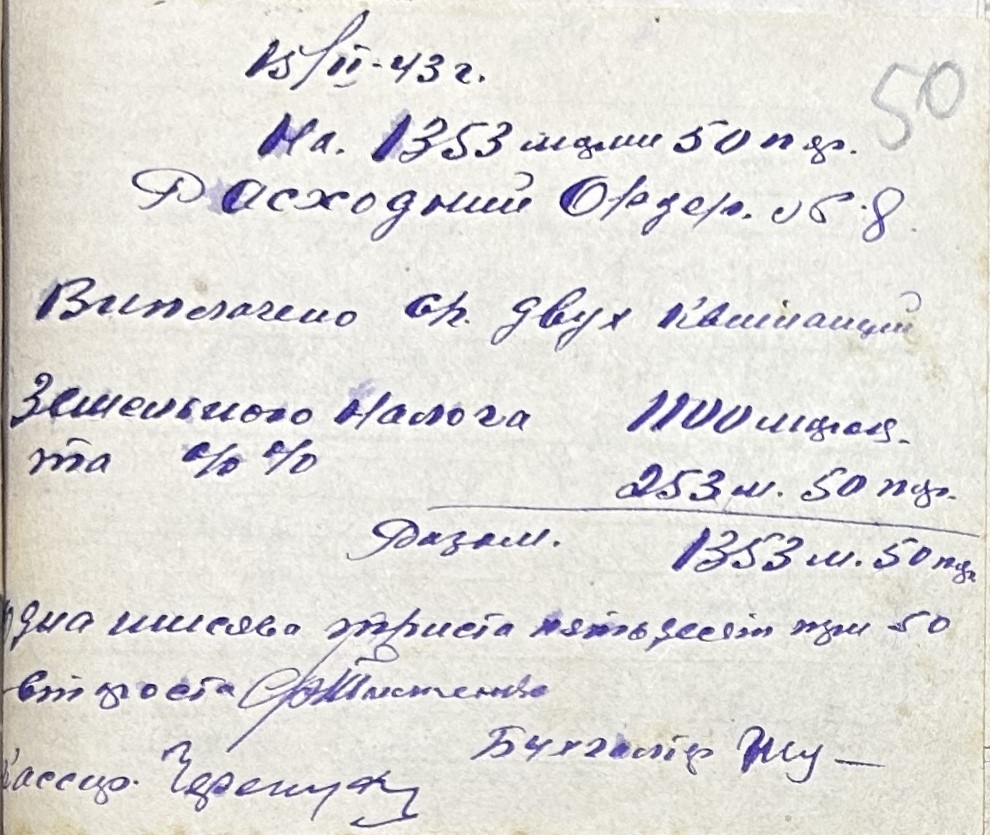 15/II-43 г.
50
На. 1353 марки 50 пф.
Расходний Ордер. № 8
Виплачено ср. двух квитанций
Земельного налога 1100 марок.
та %% 253 м. 50 пф.
Разом. 1353 м. 50 пф.
Одна тисяча триста пятьдесят три 50
Староста
Бухгалтер
Кассир.